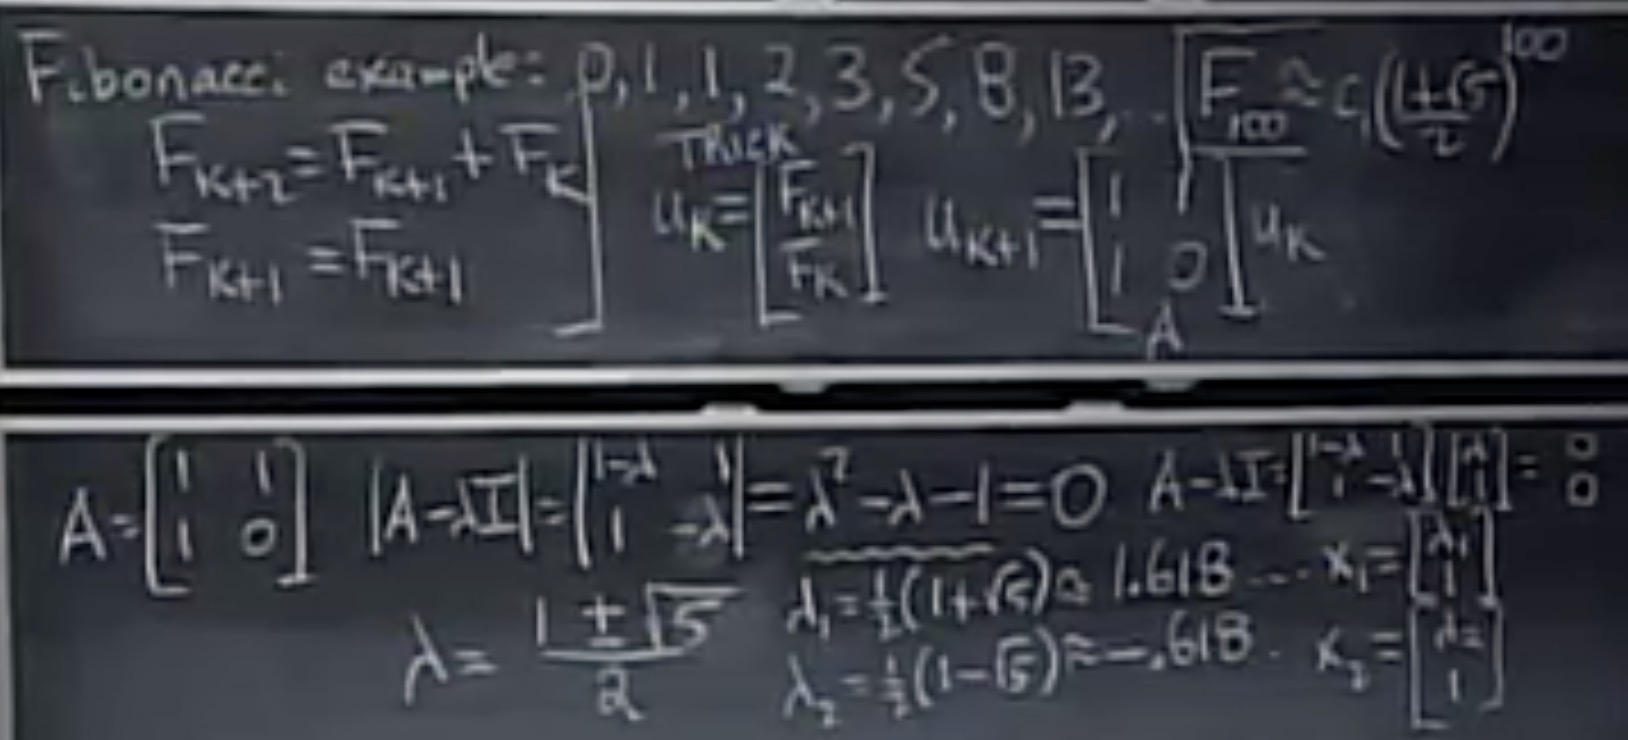 Fibonacci example: 0, 1, 1, 2, 3, 5, 8, 13, ... F₁₀₀ ≈ c₁((1+√5)/2)¹⁰⁰
Fₖ₊₂ = Fₖ₊₁ + Fₖ
Fₖ₊₁ = Fₖ₊₁
TRICK
uₖ = [Fₖ₊₁; Fₖ] uₖ₊₁ = [1 1; 1 0] uₖ
A
A = [1 1; 1 0] |A-λI| = |1-λ 1; 1 -λ| = λ²-λ-1 = 0 A-λI = [1-λ 1; 1 -λ][λ; 1] = 0 0
λ = (1±√5)/2
λ₁ = ½(1+√5) ≈ 1.618... x₁ = [λ₁; 1]
λ₂ = ½(1-√5) ≈ -.618. x₂ = [λ₂; 1]